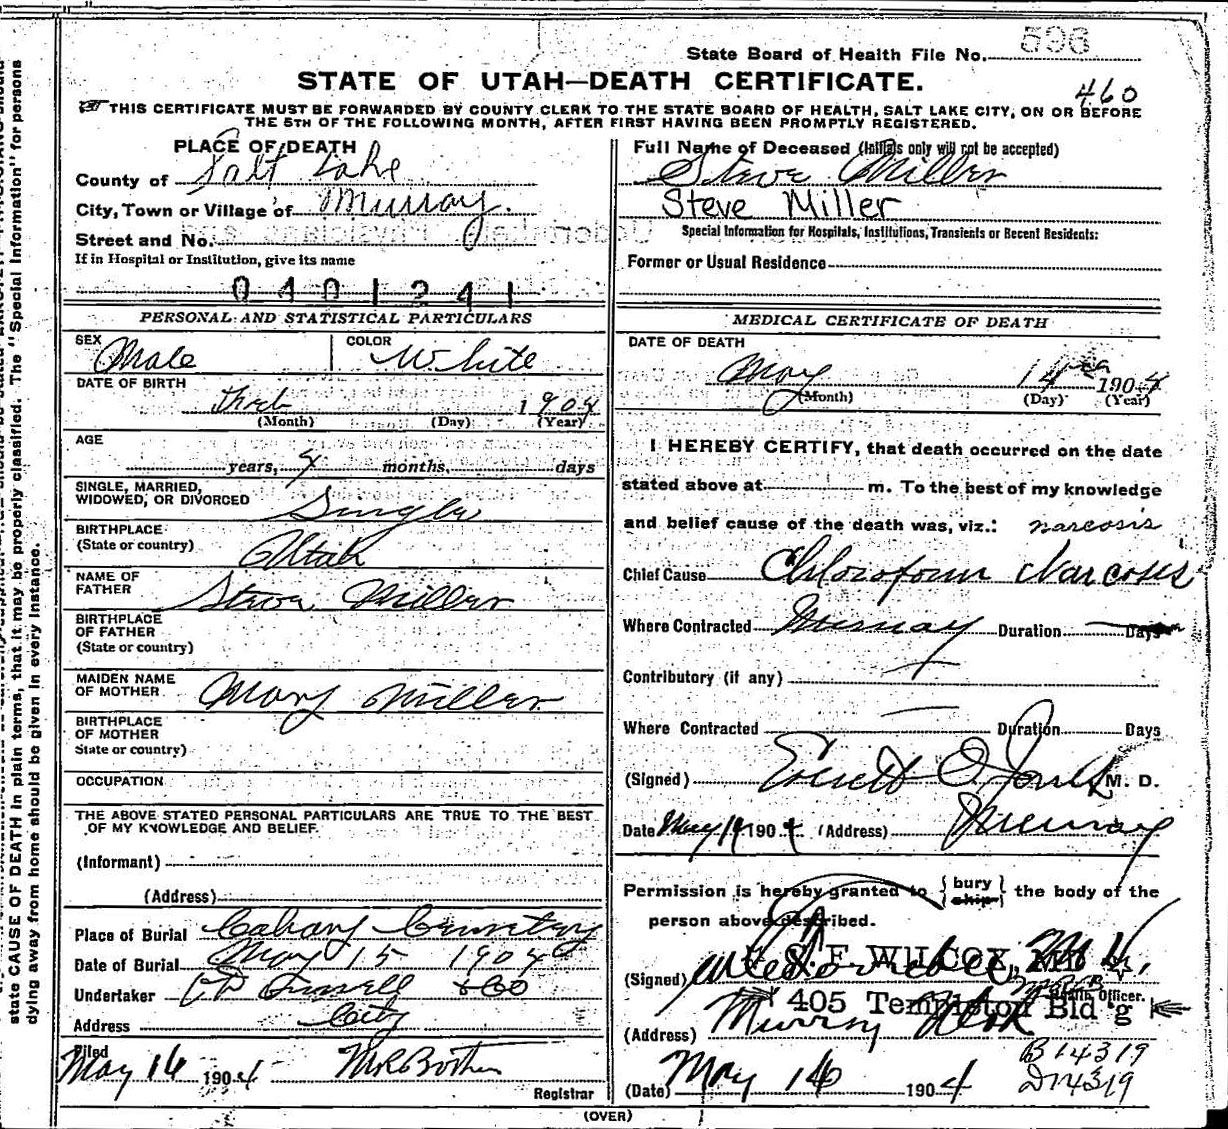 State Board of Health File No. 596
STATE OF UTAH—DEATH CERTIFICATE.
460
THIS CERTIFICATE MUST BE FORWARDED BY COUNTY CLERK TO THE STATE BOARD OF HEALTH, SALT LAKE CITY, ON OR BEFORE
THE 5TH OF THE FOLLOWING MONTH, AFTER FIRST HAVING BEEN PROMPTLY REGISTERED.
state CAUSE OF DEATH in plain terms, that it may be properly classified. The "Special Information" for persons
dying away from home should be given in every instance.
PLACE OF DEATH
County of Salt Lake
City, Town or Village of Murray.
Street and No.
If in Hospital or Institution, give its name
0401241
PERSONAL AND STATISTICAL PARTICULARS
SEX COLOR
Male White
DATE OF BIRTH
1904
(Month) (Day) (Year)
AGE
years, months, days
SINGLE, MARRIED,
WIDOWED, OR DIVORCED Single
BIRTHPLACE
(State or country) Utah
NAME OF
FATHER Steve Miller
BIRTHPLACE
OF FATHER
(State or country)
MAIDEN NAME
OF MOTHER Mary Miller
BIRTHPLACE
OF MOTHER
State or country)
OCCUPATION
THE ABOVE STATED PERSONAL PARTICULARS ARE TRUE TO THE BEST
OF MY KNOWLEDGE AND BELIEF.
(Informant)
(Address)
Place of Burial Calvary Cemetery
Date of Burial May 15 1904
Undertaker
Address City
Filed
May 16 1904
Registrar
Full Name of Deceased (Initials only will not be accepted)
Steve Miller
Steve Miller
Special Information for Hospitals, Institutions, Transients or Recent Residents:
Former or Usual Residence
MEDICAL CERTIFICATE OF DEATH
DATE OF DEATH
May 14 1904
(Month) (Day) (Year)
I HEREBY CERTIFY, that death occurred on the date
stated above at m. To the best of my knowledge
and belief cause of the death was, viz.: narcosis
Chief Cause Chloroform Narcosis
Where Contracted Murray Duration Days
Contributory (if any)
Where Contracted Duration Days
(Signed) M. D.
Date May 1904 (Address) Murray
Permission is hereby granted to { bury ship } the body of the
person above described.
(Signed) S. F. WILCOX, MD
Health Officer.
405 Templeton Bld'g
(Address) Murray
B 14319
D 14319
(Date) May 16 1904
(OVER)